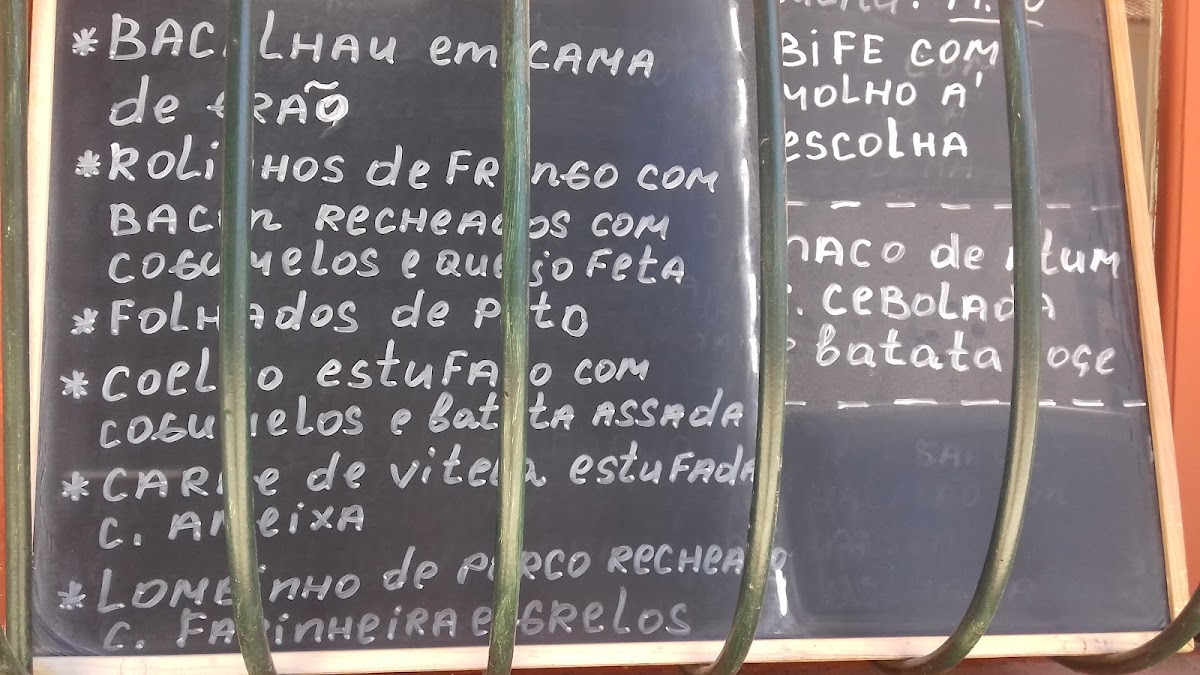 * BACALHAU em CAMA
de GRÃO
* ROLINHOS de FRANGO COM
BACON RECHEADOS COM
COGUMELOS e QUEIJO FETA
* FOLHADOS de PATO
* COELHO estUFADO COM
COGUMELOS e batata ASSADA
* CARNE de vitela estUFADA
C. AMEIXA
* LOMBINHO de PORCO RECHEADO
C. FARINHEIRA e GRELOS
BIFE COM
MOLHO A'
ESCOLHA
NACO de Atum
C. CEBOLADA
e batata DOCE